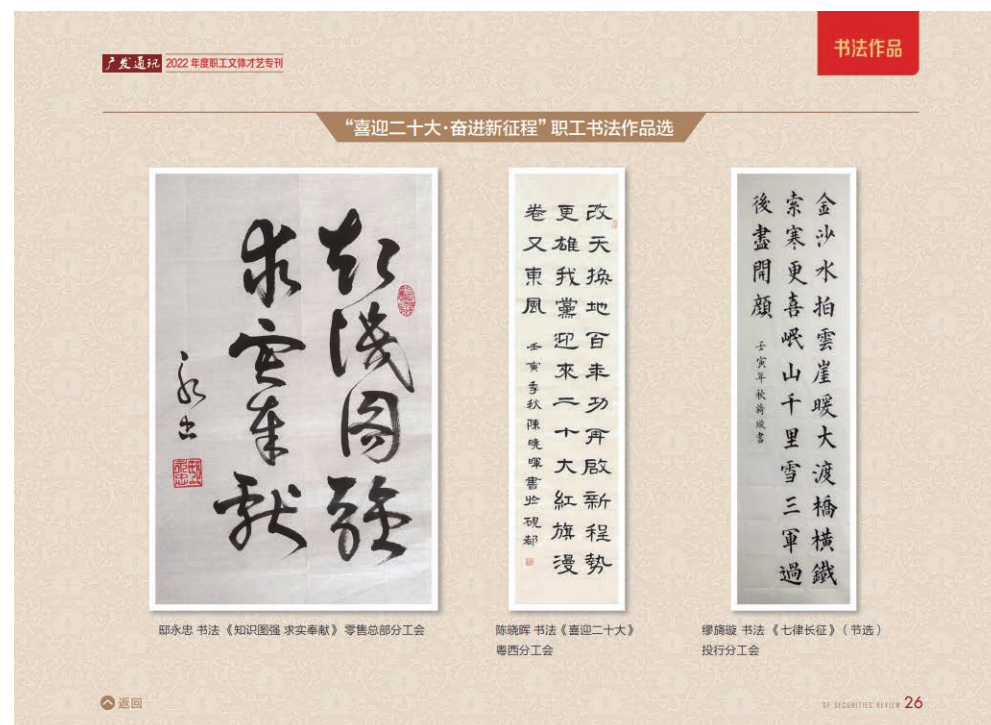 广发通讯 2022 年度职工文体才艺专刊
书法作品
“喜迎二十大·奋进新征程”职工书法作品选
知識图强
求实奉献
改天换地百年功再啟新程勢
更雄我黨迎來二十大紅旗漫
卷又東風
壬寅季秋陳曉暉書於硯都
金沙水拍雲崖暖大渡橋橫鐵
索寒更喜岷山千里雪三軍過
後盡開顔
壬寅年秋旖璇書
邸永忠 书法 《知识图强 求实奉献》 零售总部分工会
陈晓晖 书法《喜迎二十大》
粤西分工会
缪旖璇 书法 《七律长征》（节选）
投行分工会
返回
GF SECURITIES REVIEW 26